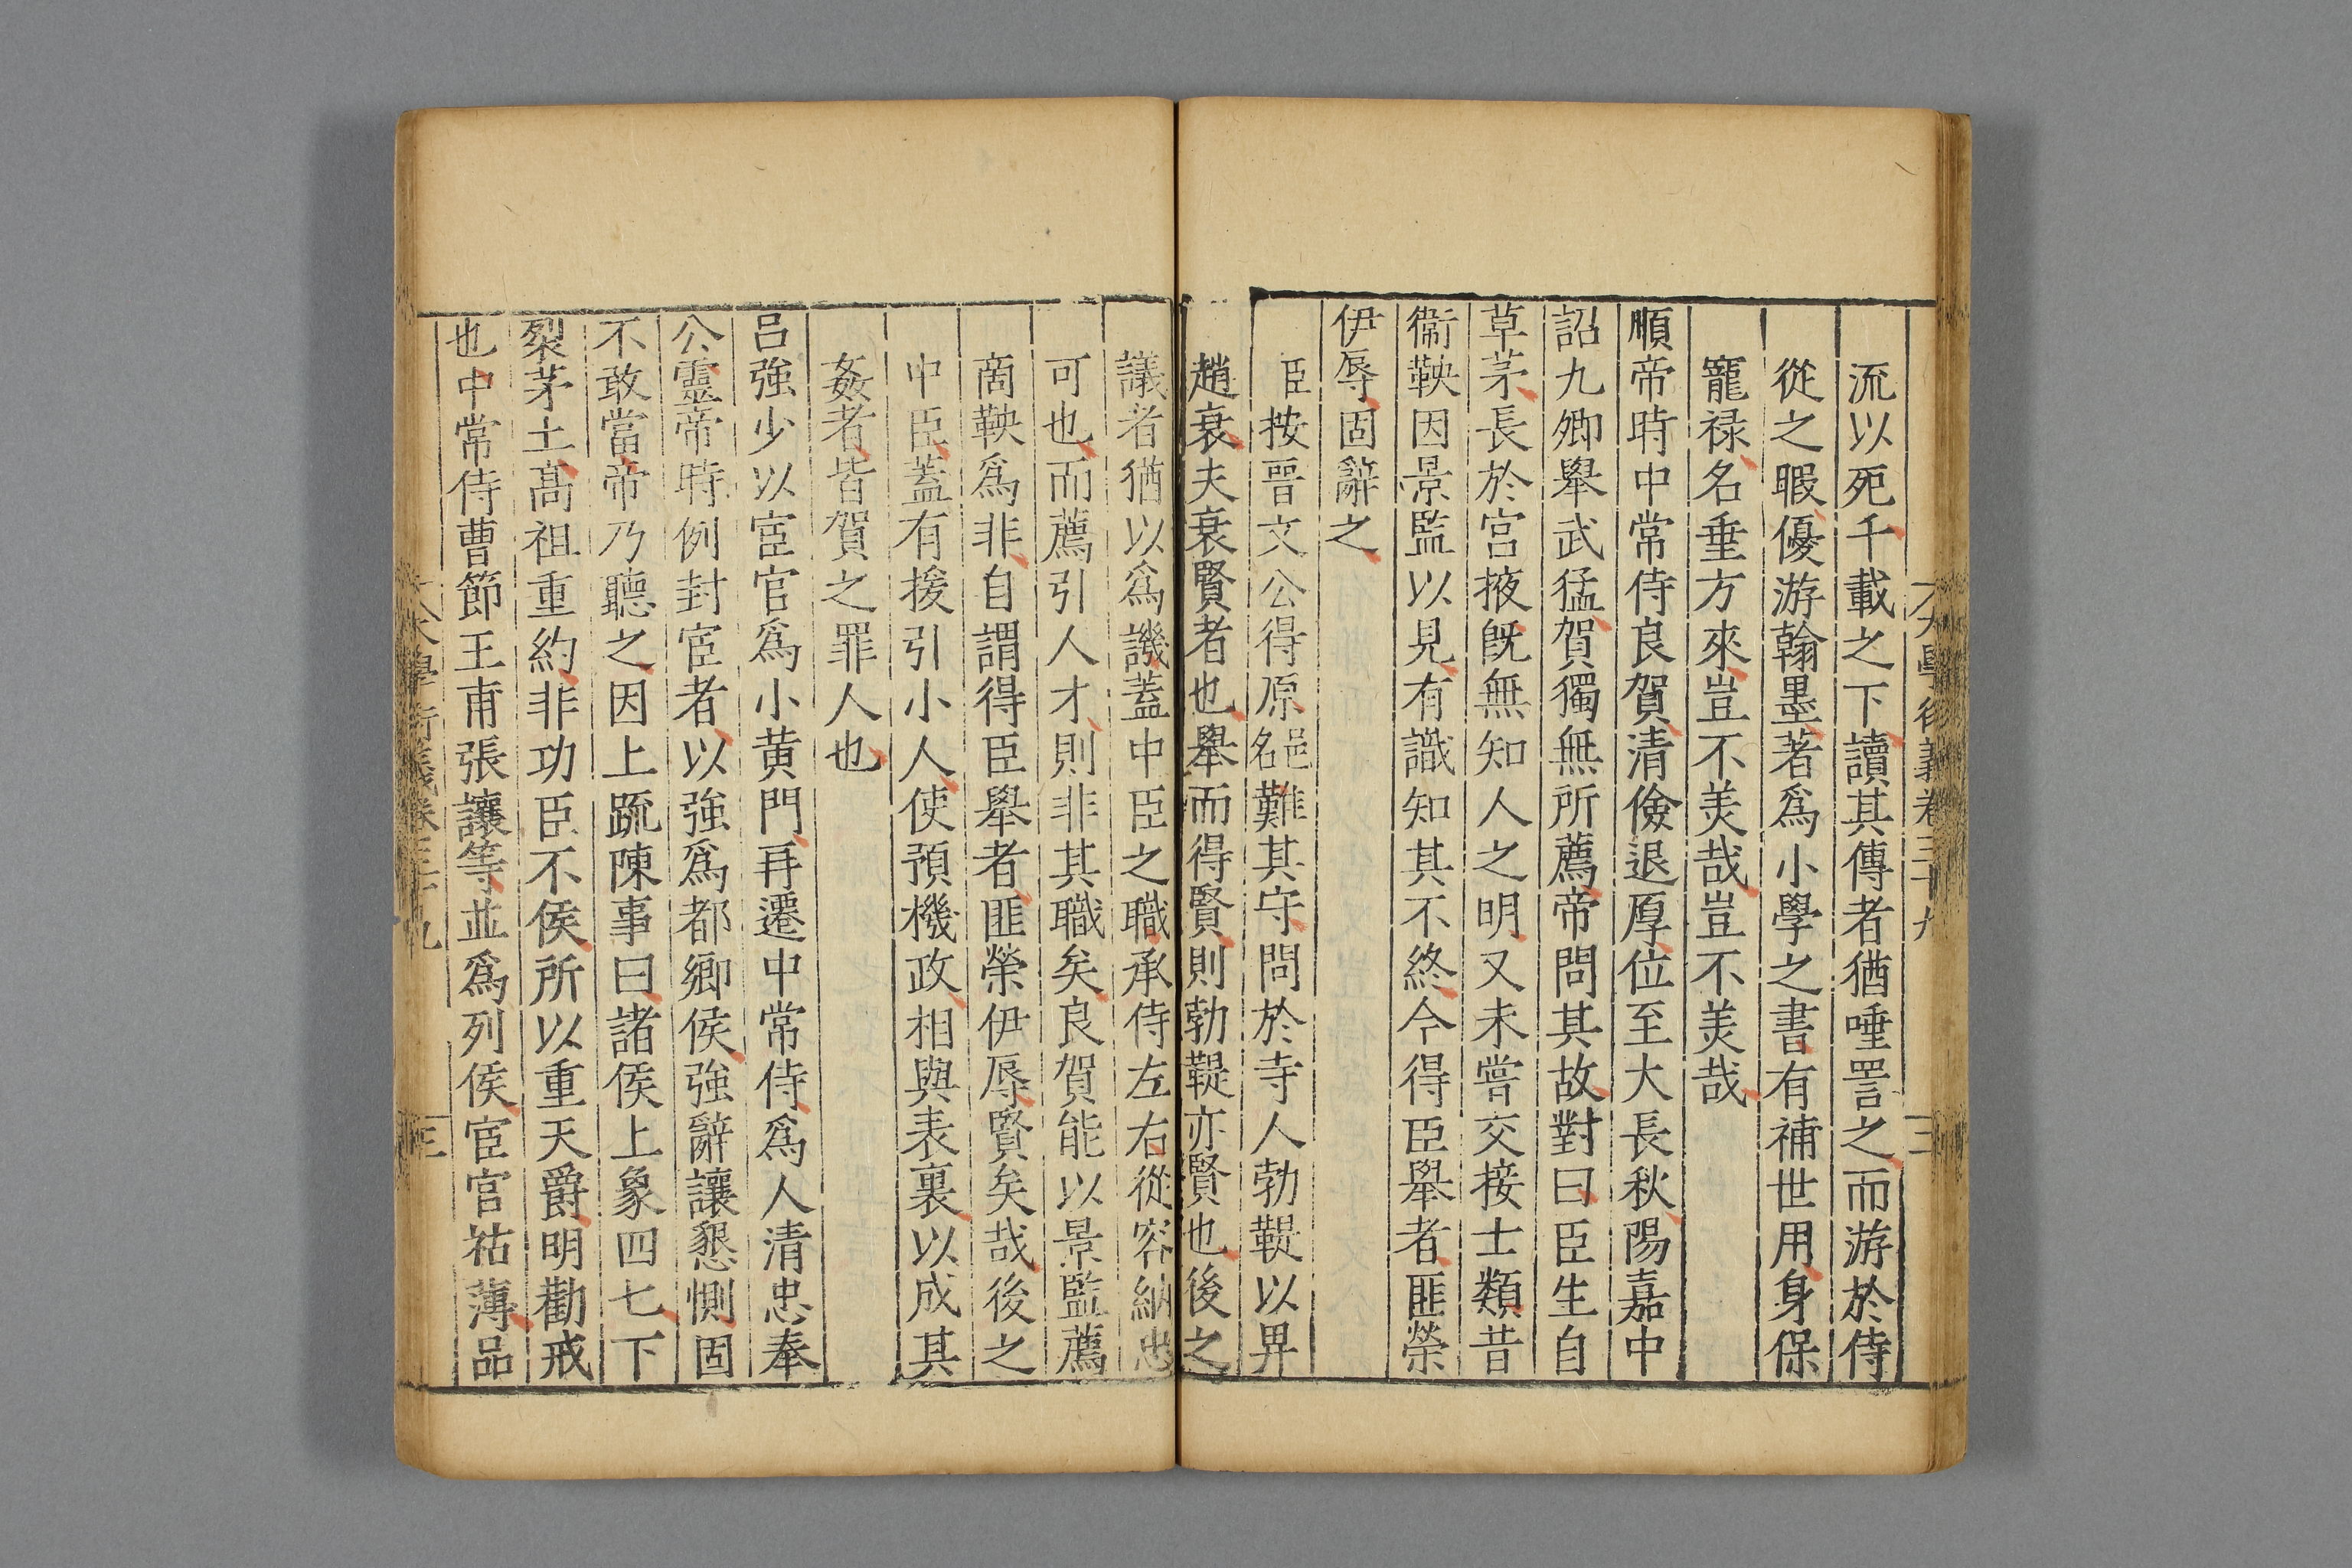 大學衍義卷三十九
二
流以死千載之下讀其傳者猶唾詈之而游於侍
從之暇優游翰墨著爲小學之書有補世用身保
寵禄名垂方來豈不美哉豈不美哉
順帝時中常侍良賀清儉退厚位至大長秋陽嘉中
詔九卿舉武猛賀獨無所薦帝問其故對曰臣生自
草茅長於宮掖既無知人之明又未嘗交接士類昔
衞鞅因景監以見有識知其不終今得臣舉者匪榮
伊辱固辭之
臣按晉文公得原邑名難其守問於寺人勃鞮以畀
趙衰夫衰賢者也舉而得賢則勃鞮亦賢也後之
議者猶以爲譏蓋中臣之職承侍左右從容納忠
可也而薦引人才則非其職矣良賀能以景監薦
商鞅爲非自謂得臣舉者匪榮伊辱賢矣哉後之
中臣蓋有援引小人使預機政相與表裏以成其
姦者皆賀之罪人也
吕強少以宦官爲小黄門再遷中常侍爲人清忠奉
公靈帝時例封宦者以強爲都鄉侯強辭讓懇惻固
不敢當帝乃聽之因上疏陳事曰諸侯上象四七下
裂茅土髙祖重約非功臣不侯所以重天爵明勸戒
也中常侍曹節王甫張讓等並爲列侯宦官祐薄品
大學衍義卷三十九
三